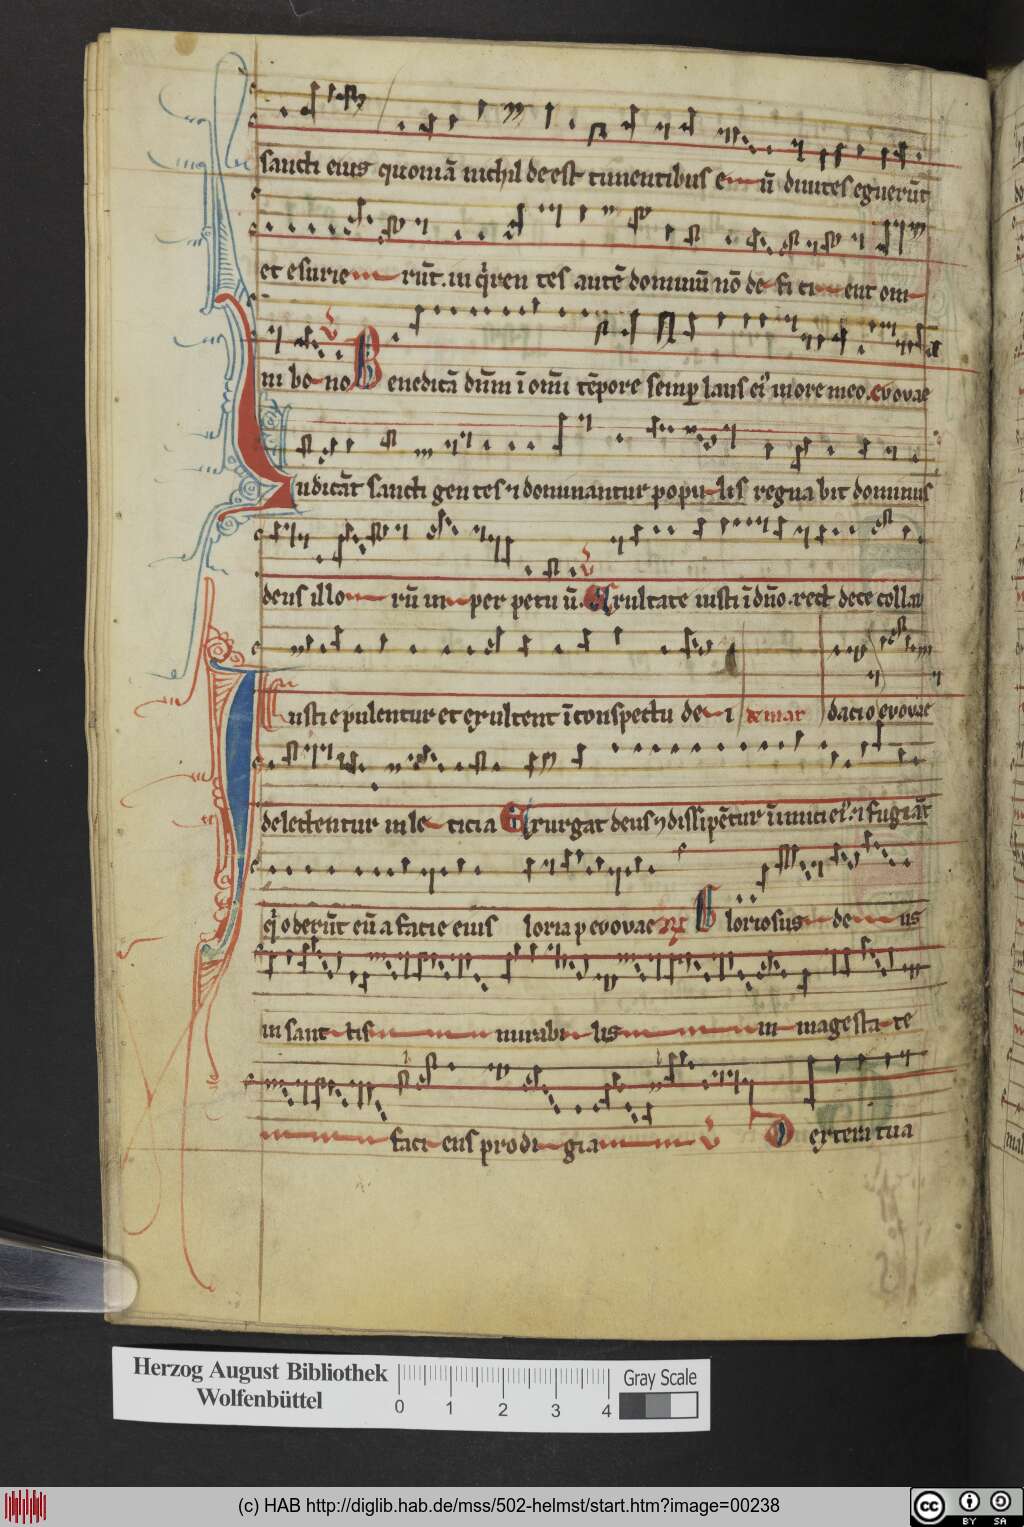 sancti eius quoniā nichil deest timentibus e ū diuites eguerūt
et esurie rūt. in q̇ren tes autē dominū nō de fi ci ent om
ni bo no Benedicā dūm ī omī tēpore semp laus ei' in ore meo. evovae
Iudicāt sancti gen tes ⁊ dominantur popu lis regnabit dominus
deus illo rū in per petu ū. Exultate iusti ī dn̄o. rect dece collau
Iusti epulentur et exultent ī conspectu de i dacio evovae
delectentur in le ticia Exurgat deus ⁊ dissipētur īimici ei'. ⁊ fugiāt
q̇ oderūt eū a facie eius loria p evovae Gloriosus de us
in sanc tis mirabi lis in magesta te
faci ens prodi gia Dextera tua
Herzog August Bibliothek
Wolfenbüttel
0 1 2 3 4
Gray Scale
(c) HAB http://diglib.hab.de/mss/502-helmst/start.htm?image=00238
cc BY SA